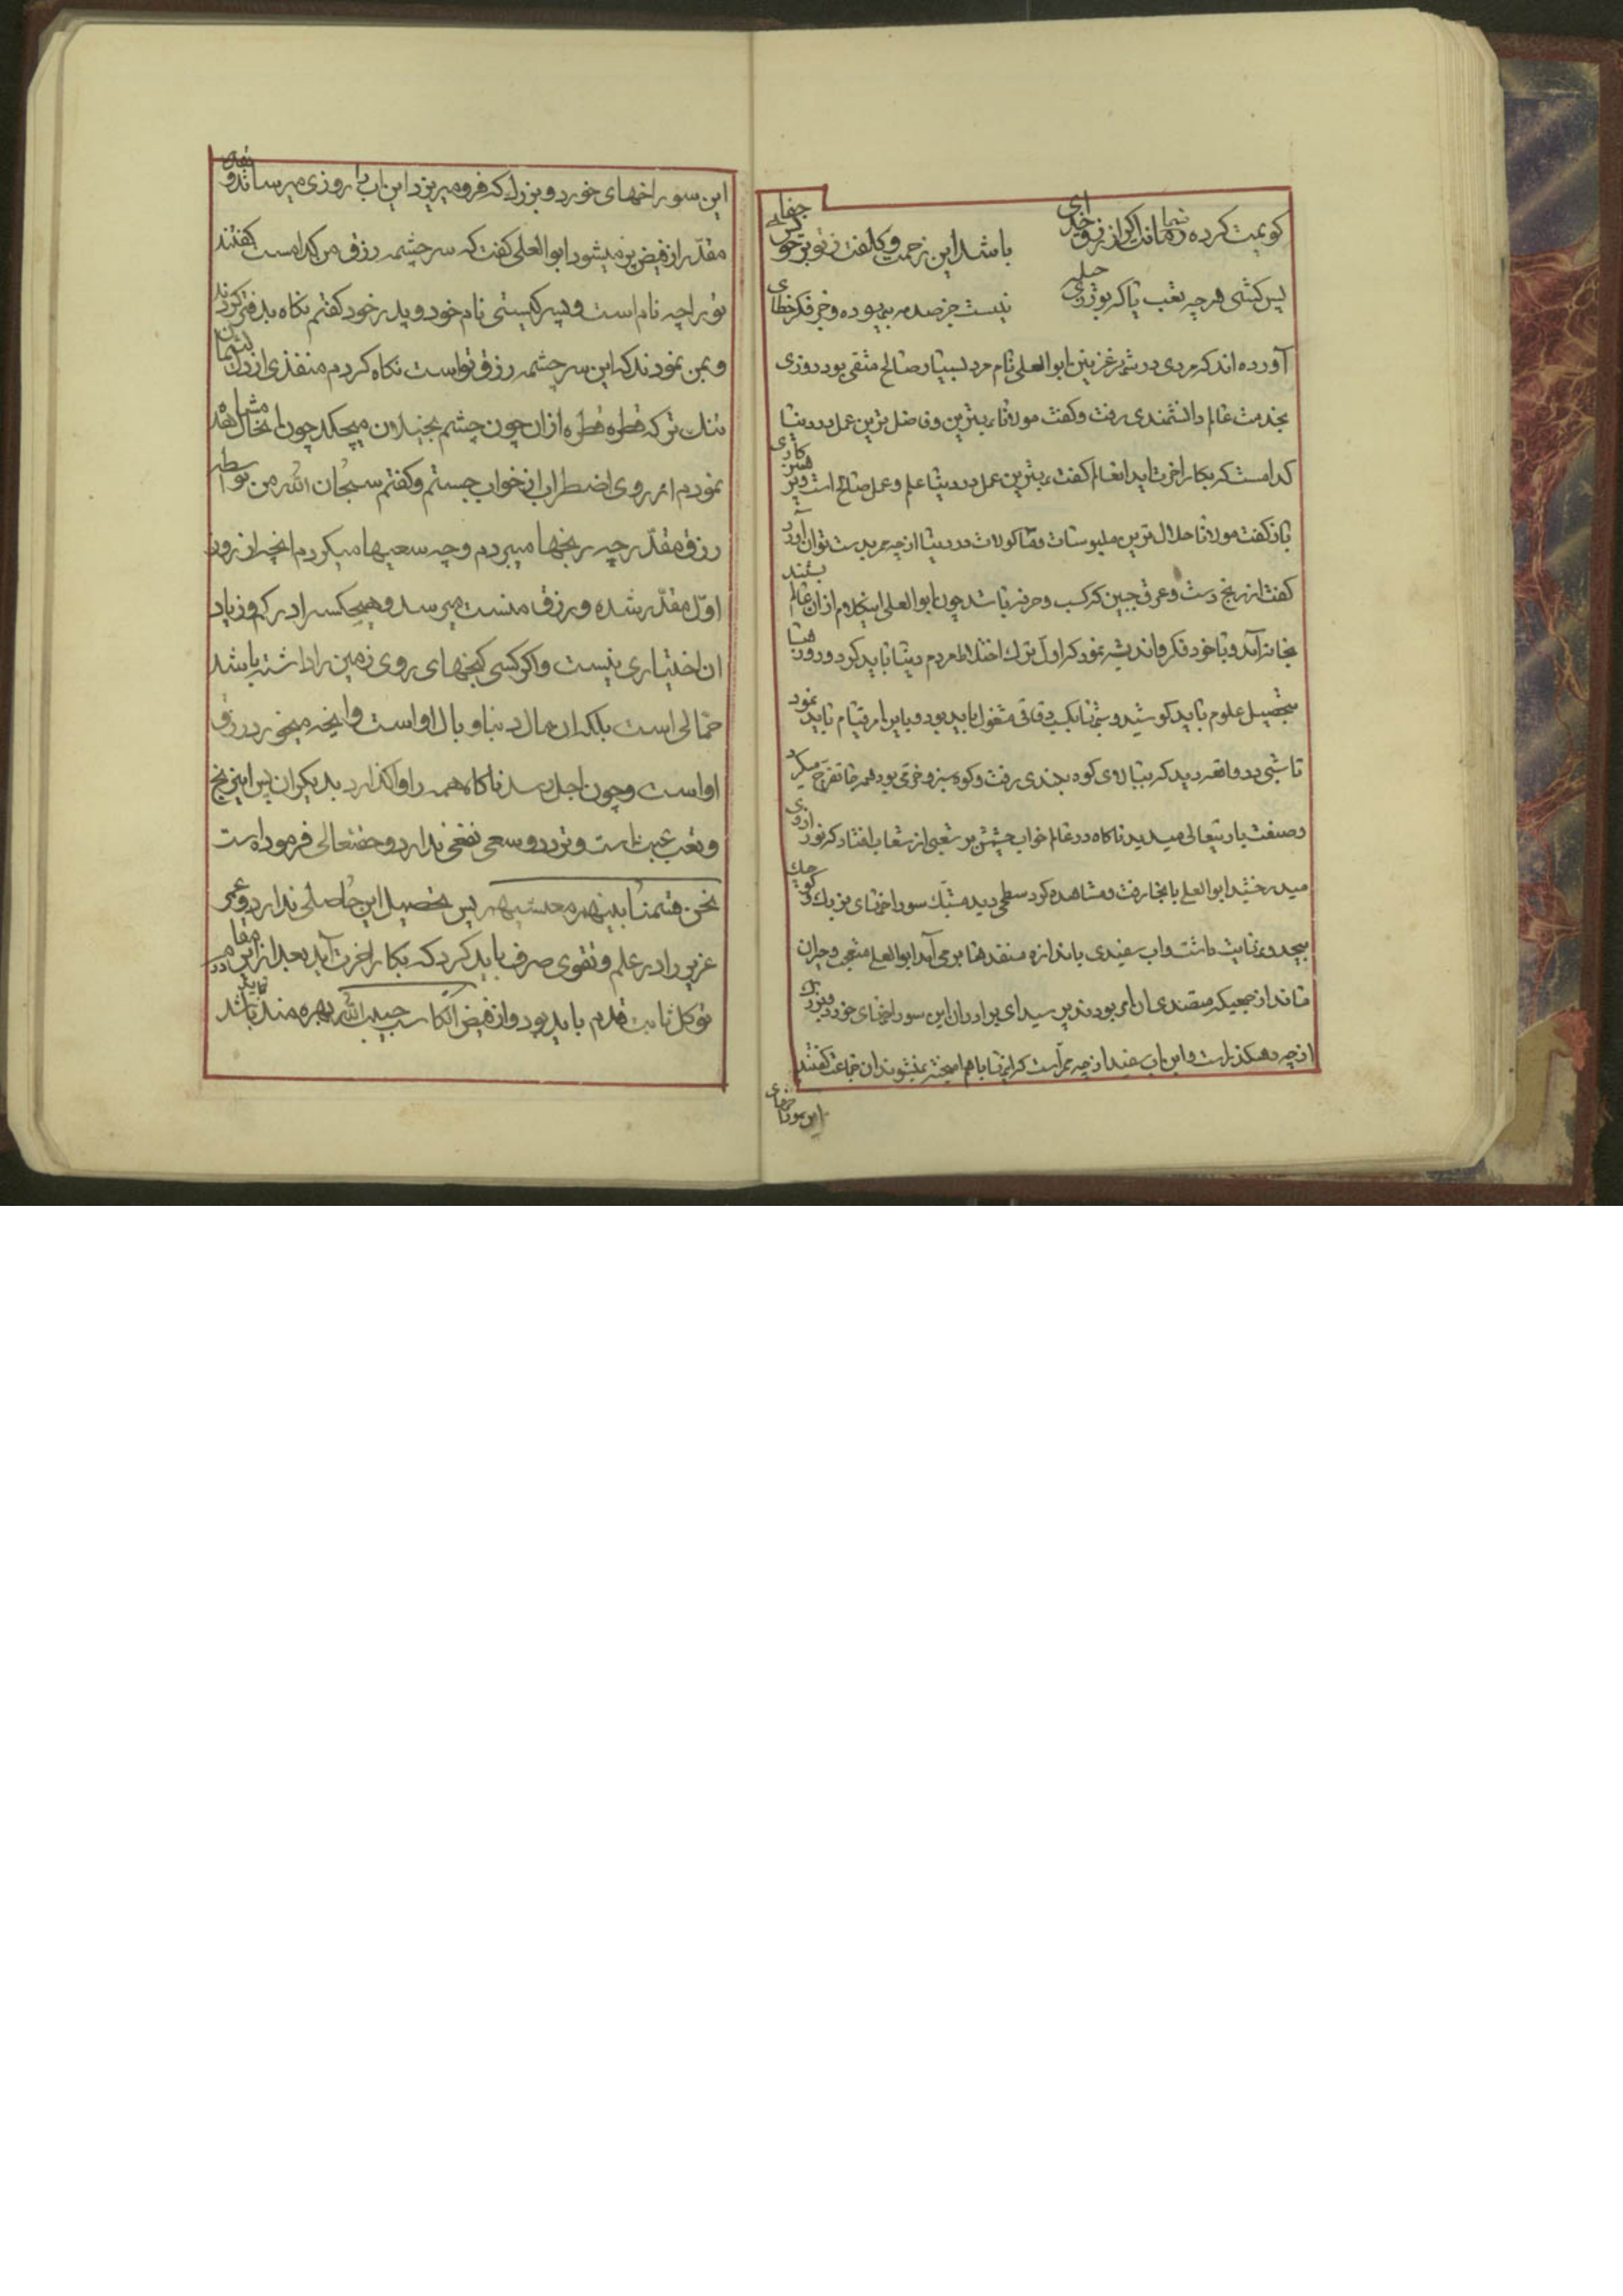 باشد این زحمت و کلفت ز تو بر خو
پس کشی هر چه تعب تا که بو
نیست جز صدمه بیهوده و جز فکر خطای
آورده اند که مردی در شهر غزنین ابوالعلی نام مرد بسیار صالح متقی بود روزی
بخدمت عالم دانشمندی رفت و کفت مولانا بهترین و فاضل ترین عمل در دنیا
کدامست که بکار اخرت اید انعالم کفت بهترین عمل در دنیا علم و عمل صالح است
باز کفت مولانا حلال ترین ملبوسات و ماکولات در دنیا از چه ممر بدست توان آورد
کفت از رنج دست و عرق جبین که کسب و حرفه باشد چون ابوالعلی اینکلام از ان عالم بشنید
بخانه آمد و با خود فکر و اندیشه نمود که اول ترک اختلاط مردم دنیا باید کرد و روزها
بتحصیل علوم باید کوشید و شبها بکسب مشغول باید بود و باین امر قیام باید نمود
تا شبی در واقعه دید که ببالای کوه بلندی رفت و کوه سبز و خرمی بود همه جا تفرج میکرد
و صنعت باریتعالی میدید ناکاه در عالم خواب چشمش بر شعبی از شعاب افتاد که نور از وی
میدرخشید ابوالعلی بانجا رفت و مشاهده کرد سطحی دید مشبک سوراخهای بزرک و کوچک
بیحد و نهایت داشت و اب سفیدی باندازه منفذها برمی آمد ابوالعلی متعجب و حیران
ماند از جمعیکه متصدی ان امر بودند پرسید ای برادران این سوراخهای خورد و بزرک
از چه رهکذر است و این اب سفید از چه ممر است که اینها باهم امیخته نمیشوند ان جماعت کفتند
این سوراخهای
این سوراخهای خورد و بزرک که فرو میریزد این اب را روزی میرساند و
مقدر از فیض پر میشود ابوالعلی کفت که سرچشمه رزق من کدامست کفتند
تو را چه نام است و پسر کیستی نام خود و پدر خود کفتم نکاه بدفتر کردند
و بمن نمودند که این سرچشمه رزق تو است نکاه کردم منفذی از
تنک تر که قطره قطره ازان چون چشم بخیلان میچکد چون انحال مشاهده
نمودم از روی اضطراب از خواب جستم و کفتم سبحان الله من بواسطه
رزق مقدر چه رنجها میبردم و چه سعیها میکردم انچه از روز
اول مقدر شده و رزق منست میرسد و هیچکس را در کم و زیاد
ان اختیاری نیست و اکر کسی کنجهای روی زمین را داشته باشد
حمالی است بلکه ان مال دنیا وبال او است و انچه میخورد رزق
او است و چون اجل رسد ناکاه همه را واکذارد بدیکران پس این رنج
و تعب عبث است و تردد و سعی نفعی ندارد و حقتعالی فرموده است
نحن قسمنا بینهم معیشتهم پس تحصیل این حاصلی ندارد و عمر
عزیز را در علم و تقوی صرف باید کرد که بکار اخرت آید بعد از این در مقام
توکل ثابت قدم باید بود و از فیض الکاسب حبیب الله بهره مند باید شد